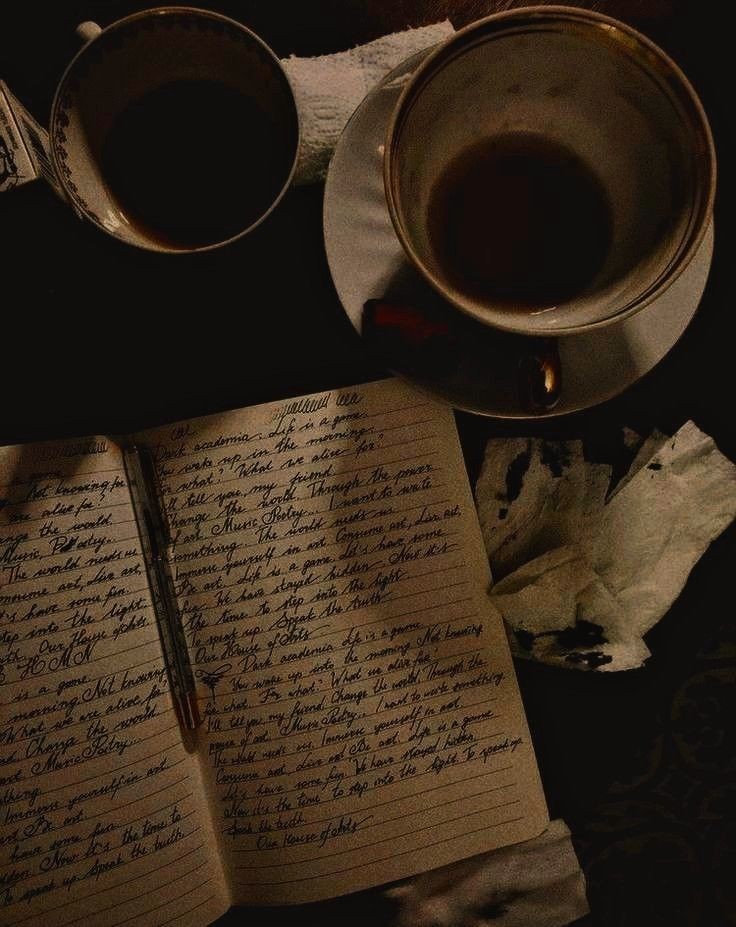 a game
Not knowing for
we alive for?
change the world.
Music, Poetry.
The world needs us
Consume art, Live art,
Let's have some fun.
step into the light.
truth. Our House of Arts
HMN
is a game
morning. Not knowing
What we alive for?
Change the world
art Music Poetry
Immerse yourself in art
art Be art.
have some fun
hidden. Now it's the time to
To speak up. Speak the truth
Dark academia. Life is a game.
You wake up in the morning.
for what? What we alive for?
I'll tell you, my friend.
Change the world. Through the power
of art. Music Poetry... I want to write
something. The world needs us.
Immerse yourself in art Consume art, Live art,
Be art. Life is a game Let's have some
fun. We have stayed hidden Now it's
the time to step into the light
To speak up Speak the truth
Our House of Arts
Dark academia Life is a game
You wake up into the morning Not knowing
for what. For what. What us alive for?
I'll tell you, my friend Change the world Through the
power of art. Music Poetry... I want to write something
The world needs us, Immerse yourself in art
Consume art, Live art Be art. Life is a game
Let's have some fun. We have stayed hidden,
Now it's the time to step into the light. To speak up.
Speak the truth.
Our House of Arts